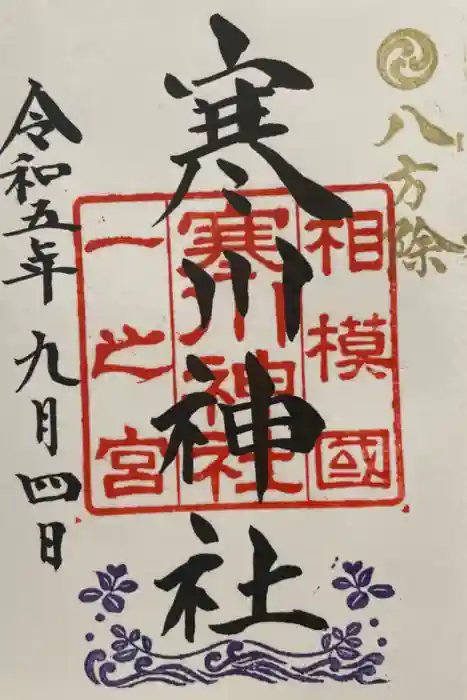 八方除
寒川神社
相模國
寒川神社
一之宮
令和五年九月四日